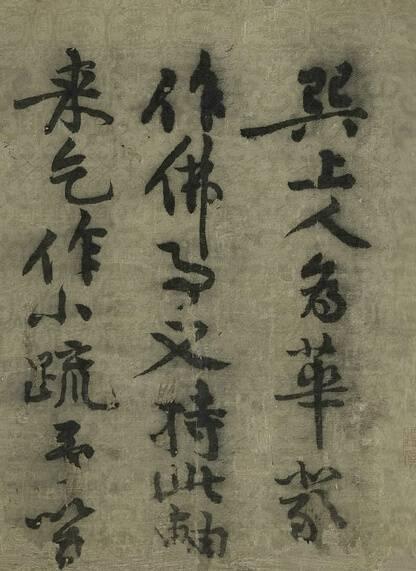 巽上人為華嚴
作佛事又持此軸
来乞作小疏予笑